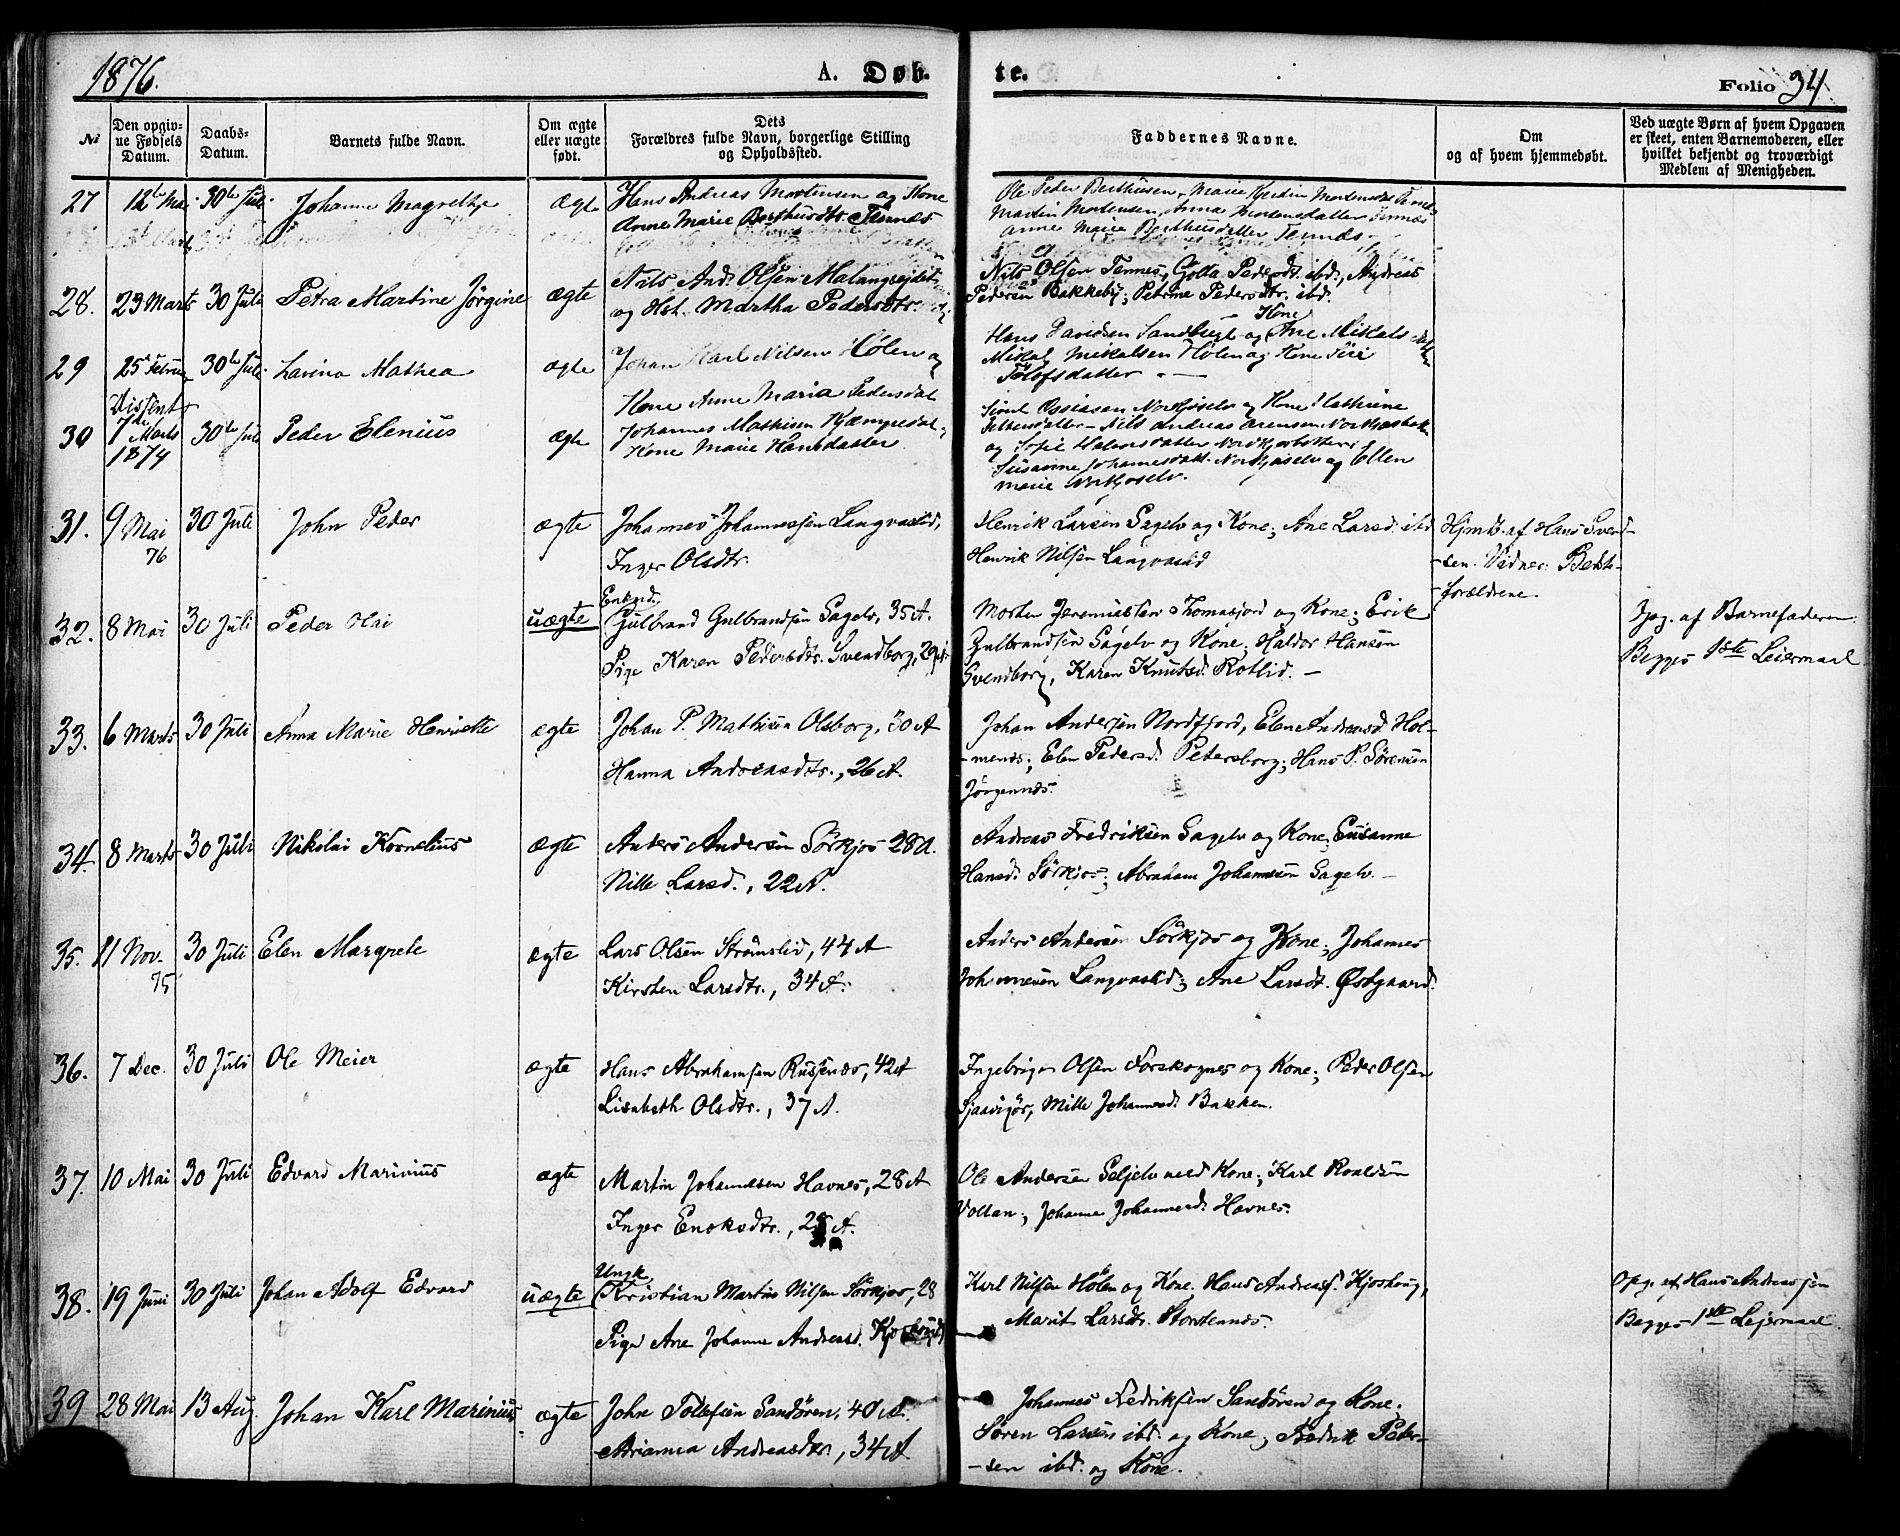 1876.
A. Døb-
te.
Folio 34
No
Den opgiv-
ne Fødsels
Datum.
Daabs-
Datum.
Barnets fulde Navn.
Om ægte
eller uægte
født.
Dets
Forældres fulde Navn, borgerlige Stilling
og Opholdsted.
Faddernes Navne.
Om
og af hvem hjemmedøbt.
Ved uægte Børn af hvem Opgaven
er skeet, enten Barnemoderen, eller
hvilket bekjendt og troværdigt
Medlem af Menigheden.
27 12te Mai 30te Juli Johanne Magrethe ægte
Hans Andreas Mortensen og Kone
Anne Marie Berthusdtr. Tennes
Ole Peder Berthusen, Marie
Martin Mortensen, Anna Mortensdatter Tennes
Anne Marie Berthusdatter Tennes
28. 23 Marts 30 Juli Petra Martine Jørgine ægte
Nils And. Olsen Malangseidet
og Hst. Martha Pedersdtr.
Nils Olsen Tennes, Golla Pedersdt. ibd., Andreas
Pedersen Bakkeby; Petrine Pedersdtr. ibd.
29 25 Februar 30te Juli Lavina Mathea ægte
Johan Karl Nilsen Holen og
Kone Anne Maria Pedersdat
Hans Davidsen Sandbugt og Kone Ane Mikals datter
Mikal Mikalsen Holen og Kone Siri
Tolofsdatter
30 Dissent 7de Marts 1874 30te Juli Peder Elenius ægte
Johannes Mathisen Kjempedal
Kone Marie Hansdatter
Sivert Ossiasen Nordkjoselv og Kone Kathrine
Nils Andreas
og Sofie
Susanne Johannesdatt. Nordkjoselv og Ellen
Marie Nordkjoselv.
31. 9 Mai 76 30 Juli John Peder ægte
Johannes Johannessen Langvaslid,
Inger Olsdtr.
Henrik Larsen Sagelv og Kone; Ane Larsd. ibd
Henrik Nilsen Langvaslid
Hjmdb. af Hans Svend-
-sen. Vidner: Bedste-
forældrene.
32. 8 Mai 30 Juli Peder Olai uægte
Enkmd.
Gulbrand Gulbrandsen Sagelv, 35 A.
Pige Karen Pedersdtr. Svendborg, 29 A.
Morten Jeremiassen Thomasjord og Kone; Erik
Gulbrandsen Sagelv og Kone; Haldor Hansen
Svendborg, Karen Knutsd. Rotlid. -
Opg. af Barnefaderen.
Begges 1ste Leiermaal
33. 6 Marts 30 Juli Anna Marie Henriette ægte
Johan P. Mathisen Olsborg, 30 A
Hanna Andreasdtr., 26 A.
Johan Andersen Nordfjord, Elen Andreasd. Hol-
-menes; Elen Pedersd. Petersborg; Hans P. Sørensen
Jørgennes.
34. 8 Marts 30 Juli Nikolai Kornelius ægte
Anders Andersen Sørkjos 28 A.
Nille Larsd., 22 A.
Andreas Fredriksen Sagelv og Kone; Susanne
Hansd. Sørkjos; Abraham Johannesen Sagelv. -
35. 11 Nov. 75 30 Juli Elen Margrete ægte
Lars Olsen Strømslid, 44 A
Kirsten Larsdtr., 34 A.
Anders Andersen Sørkjos og Kone; Johannes
Johannesen Langvaslid; Ane Larsdt. Østgaard.
36. 7 Dec. 30 Juli Ole Meier ægte
Hans Abrahamsen Russenes, 42 A
Lisabeth Olsdtr., 37 A.
Ingebrigt Olsen Forskognes og Kone; Peder Olsen
Sjaavigør, Mille Johannesd. Bakken.
37. 10 Mai 30 Juli Edvard Marinius ægte
Martin Johannesen Havnes, 28 A
Inger Enoksdtr., A.
Ole Andersen Seljelv med Kone; Karl Roaldsen
Vollan; Johanna Johannesd. Havnes.
38. 19 Juni 30 Juli Johan Adolf Edvard uægte
Ungk.
Kristian Martin Nilsen Sørkjos, 28
Pige Ane Johanne Andreasd.
Karl Nilsen Holen og Kone; Hans Andreass. Kjoshaug,
Marit Larsdtr. Storstennes.
Opg. af Hans Andreassen
Begges 1ste Lejermaal.
39 28 Mai 13 Aug. Johan Karl Marinius ægte
John Tollefsen Sandøren, 40 A.
Arianna Andreasdtr., 34 A.
Johannes Fredriksen Sandøren og Kone.
Søren Larsen ibd. og Kone; Fredrik Peder-
-sen ibd. og Kone.